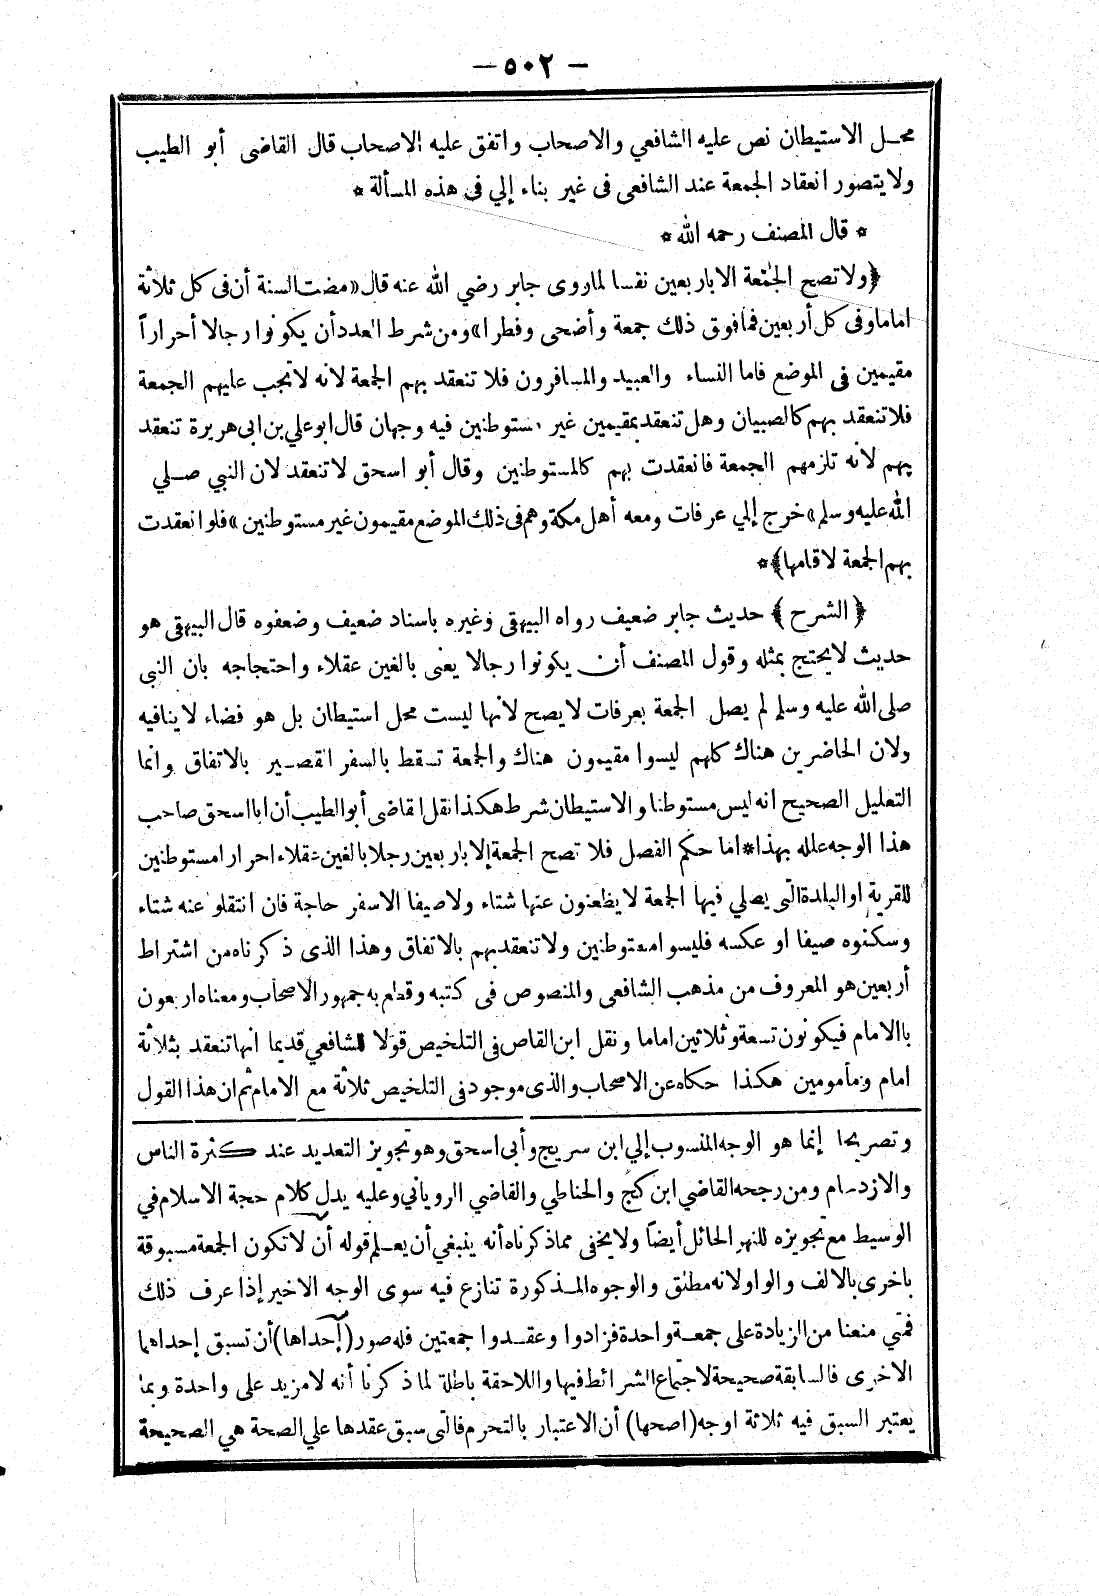 — ٥٠٢ —
محل الاستيطان نص عليه الشافعي والاصحاب واتفق عليه الاصحاب قال القاضى أبو الطيب
ولا يتصور انعقاد الجمعة عند الشافعى فى غير بناء إلي فى هذه المسألة *
* قال المصنف رحمه الله *
﴿ولا تصح الجمعة الا باربعين نفسا لما روى جابر رضي الله عنه قال «مضت السنة أن فى كل ثلاثة
اماما وفى كل أربعين فما فوق ذلك جمعة وأضحى وفطرا» ومن شرط العدد أن يكونوا رجالا أحراراً
مقيمين فى الموضع فاما النساء والعبيد والمسافرون فلا تنعقد بهم الجمعة لانه لا تجب عليهم الجمعة
فلا تنعقد بهم كالصبيان وهل تنعقد بمقيمين غير مستوطنين فيه وجهان قال ابو علي بن ابى هريرة تنعقد
بهم لانه تلزمهم الجمعة فانعقدت بهم كالمستوطنين وقال أبو اسحق لا تنعقد لان النبي صلي
الله عليه وسلم «خرج إلي عرفات ومعه أهل مكة وهم فى ذلك الموضع مقيمون غير مستوطنين» فلو انعقدت
بهم الجمعة لاقامها﴾*
﴿الشرح﴾ حديث جابر ضعيف رواه البيهقى وغيره باسناد ضعيف وضعفوه قال البيهقى هو
حديث لا يحتج بمثله وقول المصنف أن يكونوا رجالا يعنى بالغين عقلاء واحتجاجه بان النبي
صلى الله عليه وسلم لم يصل الجمعة بعرفات لا يصح لانها ليست محل استيطان بل هو فضاء لا ينافيه
ولان الحاضرين هناك كلهم ليسوا مقيمون هناك والجمعة تسقط بالسفر القصير بالاتفاق وانما
التعليل الصحيح انه ليس مستوطنا والاستيطان شرط هكذا نقل القاضى أبو الطيب أن ابا اسحق صاحب
هذا الوجه علله بهذا * اما حكم الفصل فلا تصح الجمعة إلا باربعين رجلا بالغين عقلاء احرارا مستوطنين
للقرية او البلدة التي يصلي فيها الجمعة لا يظعنون عنها شتاء ولا صيفا الا سفر حاجة فان انتقلوا عنه شتاء
وسكنوه صيفا او عكسه فليسوا مستوطنين ولا تنعقد بهم بالاتفاق وهذا الذى ذكرناه من اشتراط
أربعين هو المعروف من مذهب الشافعى والمنصوص فى كتبه وقطع به جمهور الاصحاب ومعناه اربعون
بالامام فيكونون تسعة وثلاثين اماما ونقل ابن القاص فى التلخيص قولا للشافعي قديما انها تنعقد بثلاثة
امام ومأمومين هكذا حكاه عن الاصحاب والذى موجود فى التلخيص ثلاثة مع الامام ثم ان هذا القول
وتصريحا إنما هو الوجه المنسوب إلي ابن سريج وأبى اسحق وهو تجويز التعديد عند كثرة الناس
والازدحام ومن رجحه القاضي ابن كج والحناطي والقاضي الروياني وعليه يدل كلام حجة الاسلام في
الوسيط مع تجويزه للنهر الحائل أيضاً ولا يخفى مما ذكرناه أنه ينبغي أن يعلم قوله أن لا تكون الجمعة مسبوقة
باخرى بالالف والواو لانه مطلق والوجوه المذكورة تنازع فيه سوى الوجه الاخير إذا عرف ذلك
فمتي منعنا من الزيادة على جمعة واحدة فزادوا وعقدوا جمعتين فله صور (إحداها) أن تسبق إحداهما
الاخرى فالسابقة صحيحة لاجتماع الشرائط فيها واللاحقة باطلة لما ذكرنا أنه لا مزيد على واحدة وبما
يعتبر السبق فيه ثلاثة اوجه (اصحها) أن الاعتبار بالتحرم فالتى سبق عقدها علي الصحة هي الصحيحة